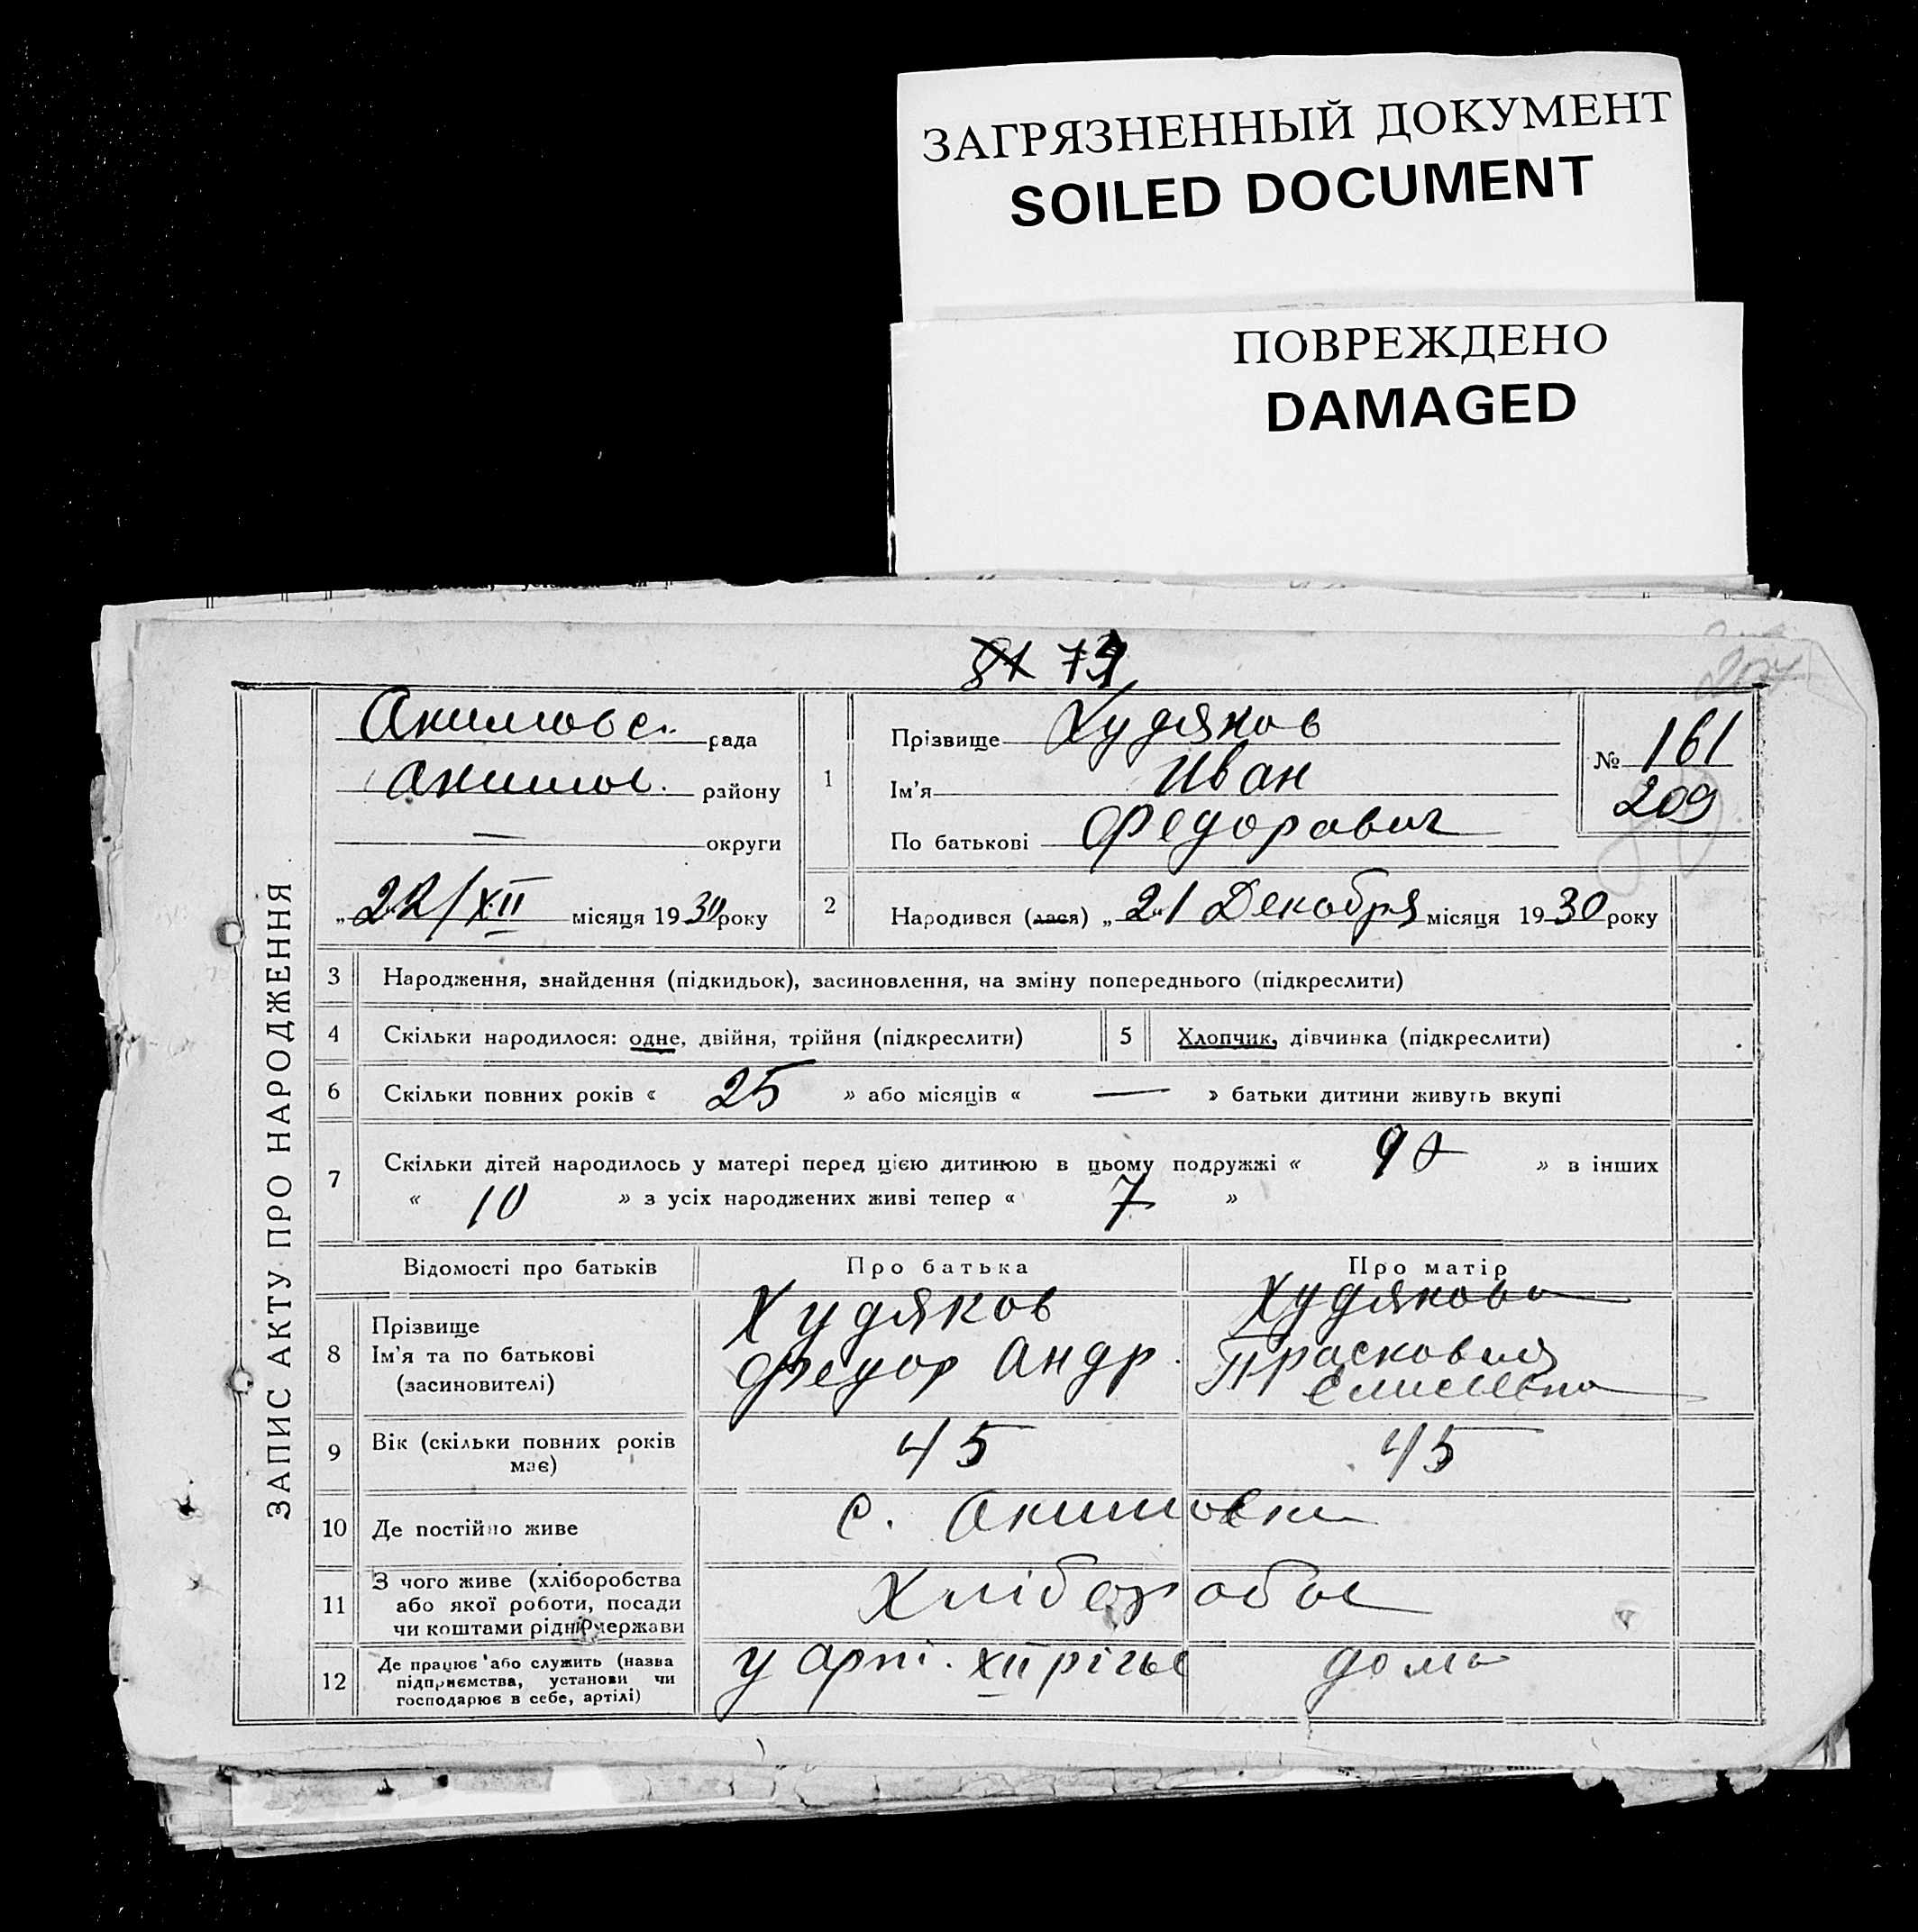 ЗАГРЯЗНЕННЫЙ ДОКУМЕНТ
SOILED DOCUMENT
ПОВРЕЖДЕНО
DAMAGED
81 79
ЗАПИС АКТУ ПРО НАРОДЖЕННЯ
Акимовс. рада
Акимов. району
— округи
„22/XII місяця 1930 року
1
Прізвище Худяков
Ім'я Иван
По батькові Федорович
№ 161
209
2 Народився (лася) „21 Декабря місяця 1930 року
3 Народження, знайдення (підкидьок), засиновлення, на зміну попереднього (підкреслити)
4 Скільки народилося: одне, двійня, трійня (підкреслити) 5 Хлопчик, дівчинка (підкреслити)
6 Скільки повних років « 25 » або місяців « — » батьки дитини живуть вкупі
7 Скільки дітей народилось у матері перед цією дитиною в цьому подружжі « 9 » в інших
« 10 » з усіх народжених живі тепер « 7 »
Відомості про батьків Про батька Про матір
8 Прізвище Худяков Худякова
Ім'я та по батькові Федор Андр. Прасковия
(засиновителі)
9 Вік (скільки повних років має) 45 45
10 Де постійно живе с. Акимовка
11 З чого живе (хліборобства
або якої роботи, посади
чи коштами рідні, держави Хлібороби
12 Де працює або служить (назва
підприємства, установи чи
господарює в себе, артілі) у арті. XII річье дома